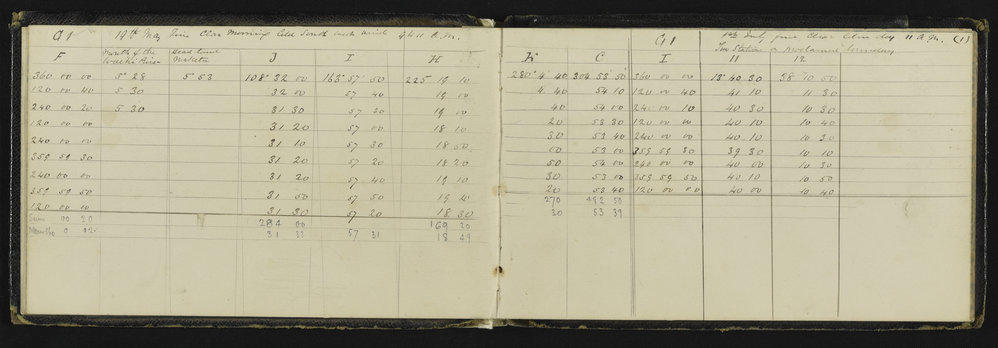 G1 19th May fine Clear Morning Cold South wind 9h 11 A.M.
F Mouth of the Waihi River Head tunl Maketu J I H
360 00 00 5° 28 5 53 108° 32 00 163° 57' 50 225 19 10
120 00 40 5 30 32 00 57 40 19 00
240 00 20 5 30 31 30 57 20 19 00
120 00 00 31 20 57 00 18 10
240 00 00 31 10 57 30 18 50
359 59 30 31 20 57 20 18 20
240 00 00 31 20 57 40 19 10
359 59 50 31 50 57 50 19 10
120 00 10 31 30 57 20 18 30
Sum 00 20 284 00 169 20
0 02 31 33 57 31 18 49
G1 July fine Clear day 11 A.M. (1)
Two Stations
K C I 11 12
280° 4' 40 304 53 50 360 00 00 13° 40 30 38 10 50
4 40 54 10 120 00 40 41 10 11 30
40 54 00 240 00 10 40 30 10 30
20 53 30 120 00 00 40 10 10 40
30 53 40 240 00 00 40 10 10 30
00 53 00 359 59 30 39 30 10 10
50 54 00 240 00 00 40 00 10 30
30 53 00 359 59 50 40 10 10 50
20 53 40 120 00 00 40 00 10 40
270 482 50
30 53 39